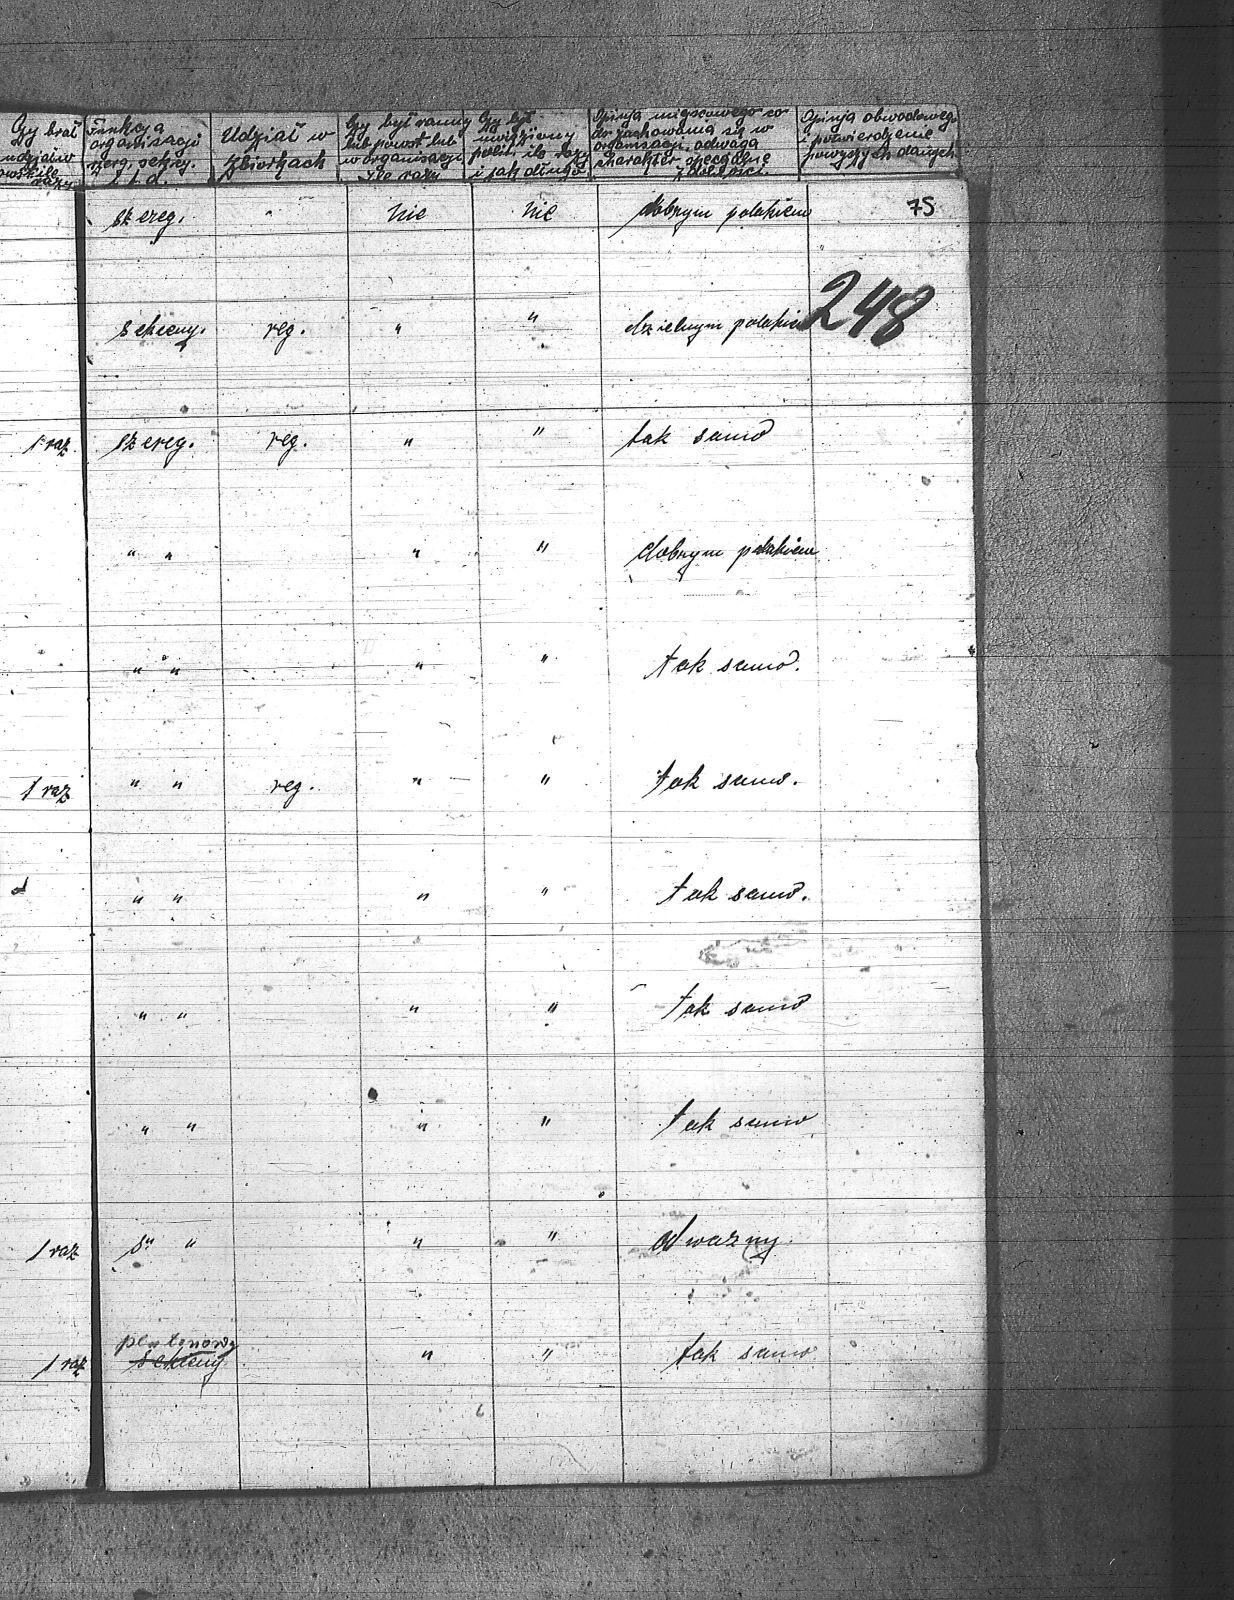 Czy brał
udział w
ile
razy
Funkcja
organizacji
szereg. sekcy.
i. t. d.
Udział w
Zbiórkach
Czy był ranny
lub
w organizacji
ile razy
Czy był
więziony
polit. ile razy
i jak długo
Opinja miejscowego co
do zachowania się w
organizacji, odwaga
charakter, specjalne
zdolności.
Opinja obwodowego
i potwierdzenie
powyższych danych
szereg. " nie nie dobrym polakiem 75
248
sekcny. reg. " " dzielnym polakiem
1 raz szereg. reg. " " tak samo
" " " " dobrym polakiem
" " " " tak samo.
1 raz " " reg. " " tak samo.
" " " " tak samo.
" " " " tak samo
" " " " tak samo
1 raz s" " " " odważny.
plutonowy
1 raz sekcny " " tak samo